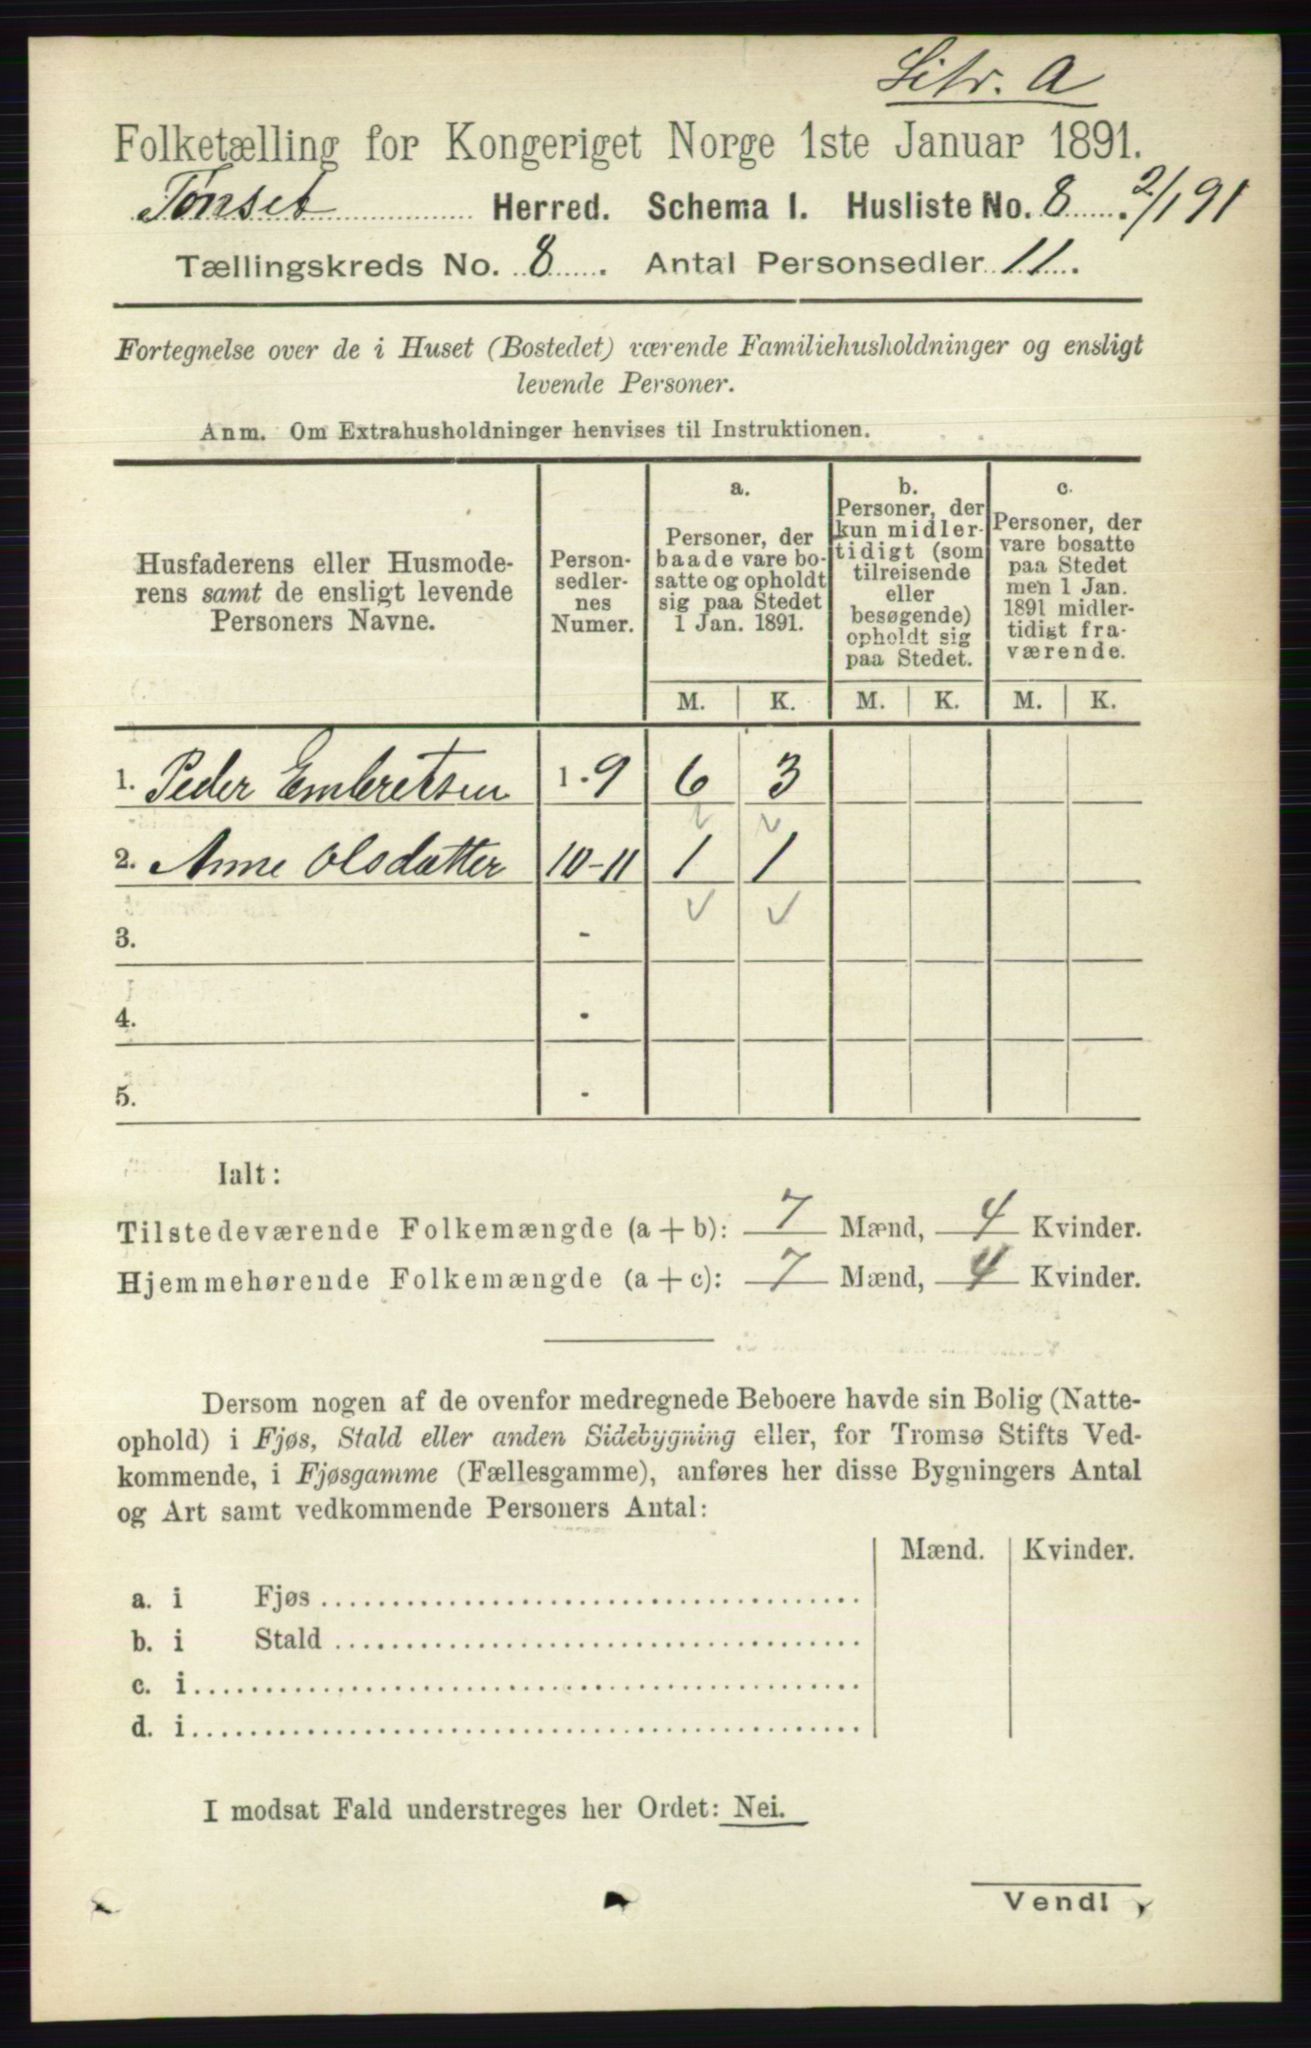 Litr. A
Folketælling for Kongeriget Norge 1ste Januar 1891.
Tønset Herred. Schema I. Husliste No. 8 2/191
Tællingskreds No. 8. Antal Personsedler 11.
Fortegnelse over de i Huset (Bostedet) værende Familiehusholdninger og ensligt
levende Personer.
Anm. Om Extrahusholdninger henvises til Instruktionen.
Husfaderens eller Husmode-
rens samt de ensligt levende
Personers Navne.
Person-
sedler-
nes
Numer.
a.
Personer, der
baade vare bo-
satte og opholdt
sig paa Stedet
1 Jan. 1891.
b.
Personer, der
kun midler-
tidigt (som
tilreisende
eller
besøgende)
opholdt sig
paa Stedet.
c.
Personer, der
vare bosatte
paa Stedet
men 1 Jan.
1891 midler-
tidigt fra-
værende.
M. K. M. K. M. K.
1. Peder Embretsen 1-9 6 3
2. Anne Olsdatter 10-11 1 1
3. -
4. -
5. -
Ialt:
Tilstedeværende Folkemængde (a + b): 7 Mænd, 4 Kvinder.
Hjemmehørende Folkemængde (a + c): 7 Mænd, 4 Kvinder.
Dersom nogen af de ovenfor medregnede Beboere havde sin Bolig (Natte-
ophold) i Fjøs, Stald eller anden Sidebygning eller, for Tromsø Stifts Ved-
kommende, i Fjøsgamme (Fællesgamme), anføres her disse Bygningers Antal
og Art samt vedkommende Personers Antal:
Mænd. Kvinder.
a. i Fjøs
b. i Stald
c. i
d. i
I modsat Fald understreges her Ordet: Nei.
Vend!